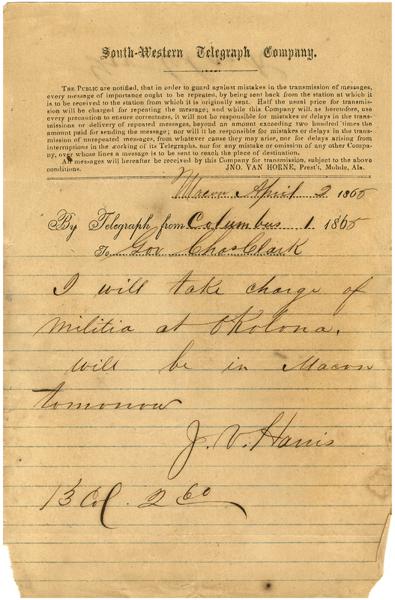 South-Western Telegraph Company.
THE PUBLIC are notified, that in order to guard against mistakes in the transmission of messages,
every message of importance ought to be repeated, by being sent back from the station at which it
is to be received to the station from which it is originally sent. Half the usual price for transmis-
sion will be charged for repeating the message; and while this Company will as heretofore, use
every precaution to ensure correctness, it will not be responsible for mistakes or delays in the trans-
missions or delivery of repeated messages, beyond an amount exceeding two hundred times the
amount paid for sending the message; nor will it be responsible for mistakes or delays in the transmis-
sion of unrepeated messages, from whatever cause they may arise, nor for delays arising from
interruptions in the working of its Telegraphs, nor for any mistake or omission of any other Compa-
ny, over whose lines a message is to be sent to reach the place of destination.
All messages will hereafter be received by this Company for transmission, subject to the above
conditions. JNO. VAN HORNE, Pres't, Mobile, Ala.
Macon April 2 1865
By Telegraph from Columbus 1 1865
To Gov Chas Clark
I will take charge of
militia at Okolona.
will be in Macon
tomorrow
J. V. Harris
13 Col. 2 60